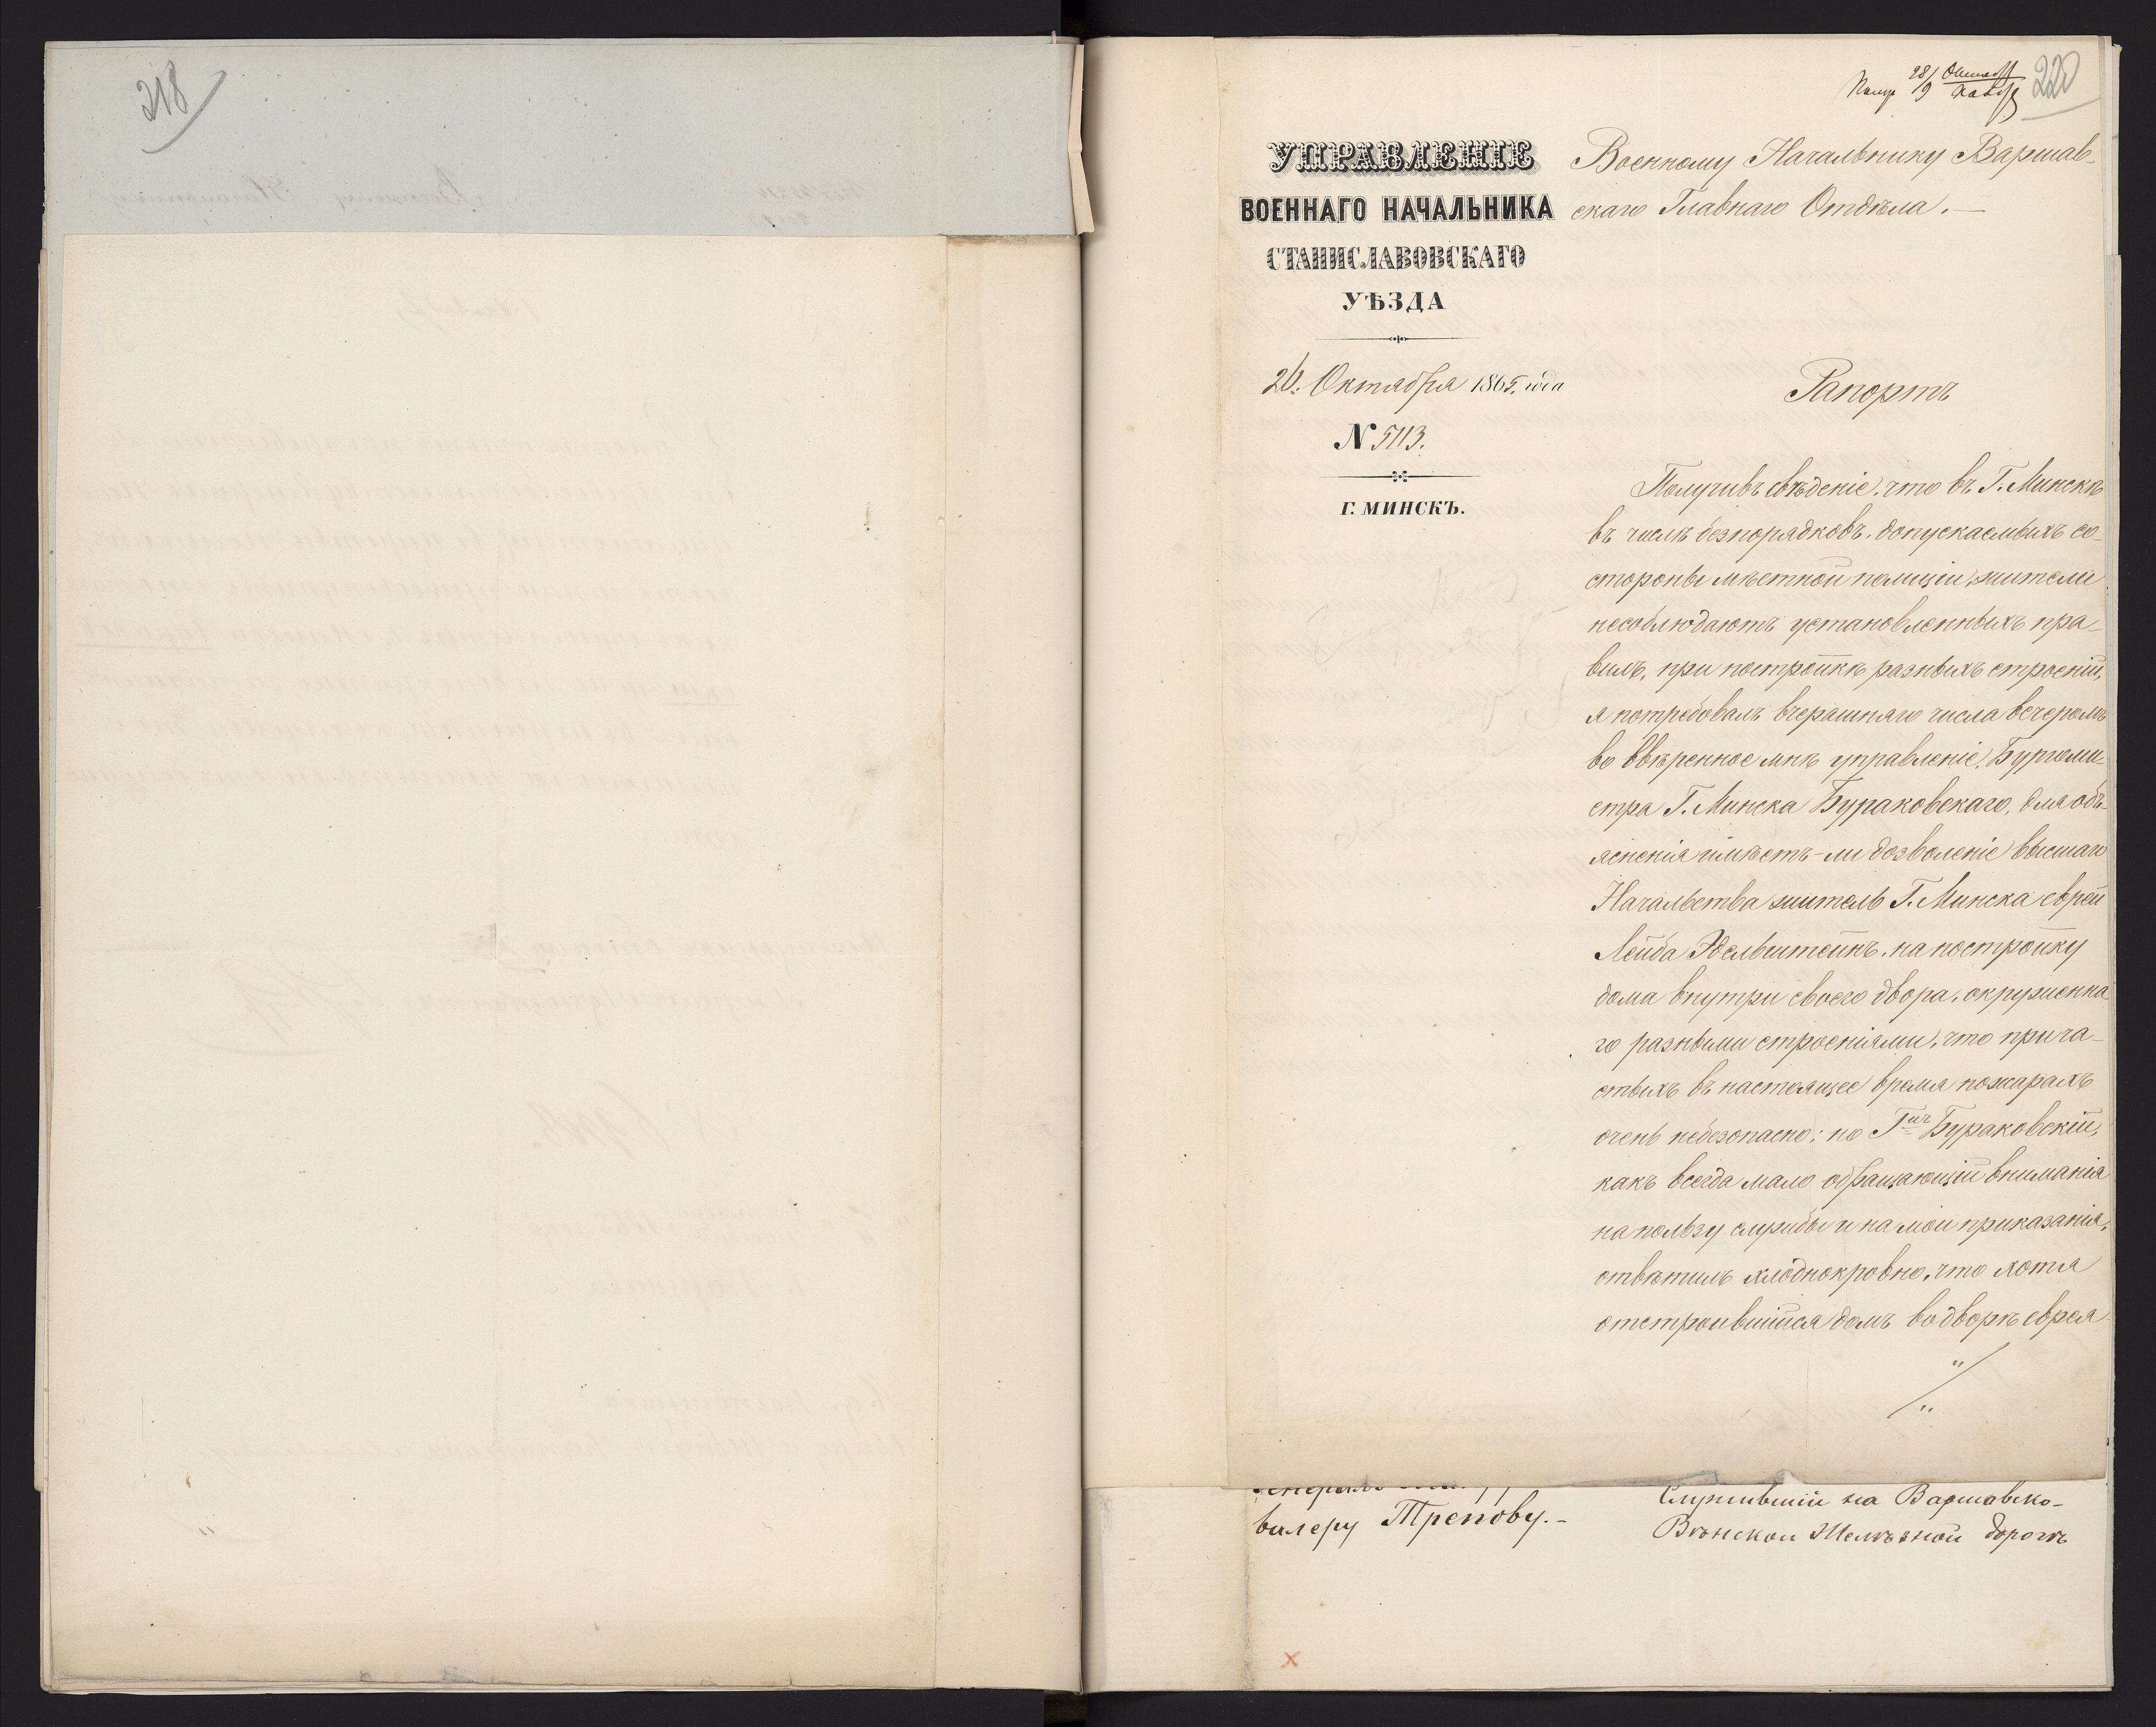 218
220
Получ. 28/9 Октября/Ноября
УПРАВЛЕНІЕ
ВОЕННАГО НАЧАЛЬНИКА
СТАНИСЛАВОВСКАГО
УѢЗДА
26. Октября 1865. года
N 5113.
Г. МИНСКЪ.
Военному Начальнику Варшав-
скаго Главнаго Отдѣла.—
Рапортъ
Получивъ свѣденіе, что въ Г. Минскѣ
въ числѣ безпорядковъ, допускаемыхъ со-
стороны мѣстной полиціи, жители
несоблюдаютъ установленныхъ пра-
вилъ, при постройкѣ разныхъ строеній,
я потребовалъ вчерашняго числа вечеромъ
во ввѣренное мнѣ управленіе, Бургоми-
стра Г. Минска Бураковскаго, для объ-
ясненія имѣетъ-ли дозволеніе высшаго
Начальства житель Г. Минска еврей
Лейба Эдельштейнъ, на постройку
дома внутри своего двора, окруженна
го разными строеніями, что при ча-
стыхъ въ настоящее время пожарахъ
очень небезопасно; но Гнъ Бураковскій,
какъ всегда мало обращающій вниманія
на пользу службы и на мои приказанія,
отвѣтилъ хлоднокровно, что хотя
отстроившійся домъ во дворѣ еврея
валеру Трепову.-
Служившій на Варшавско-
Вѣнской Желѣзной дорогѣ